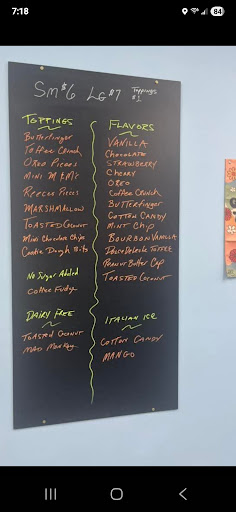 7:18
84
Sm $6 LG $7 Toppings $1
TOPPINGS
Butterfinger
Toffee Crunch
Oreo Pieces
Mini M&Ms
Reeces Pieces
MARSHMALLOW
TOASTED Coconut
Mini Chocolate Chips
Cookie Dough Bits
No Sugar Added
Coffee Fudge
DAIRY FREE
TOASTED Coconut
MAD MonKey
FLAVORS
VANILLA
Chocolate
STRAWBERRY
CHERRY
OREO
Coffee Crunch
BUTTERfinger
COTTON CANDY
MINT Chip
BOURBON VANILLA
TOFFEE
Peanut Butter Cup
TOASTED Coconut
ITALIAN ICE
COTTON CANDY
MANGO